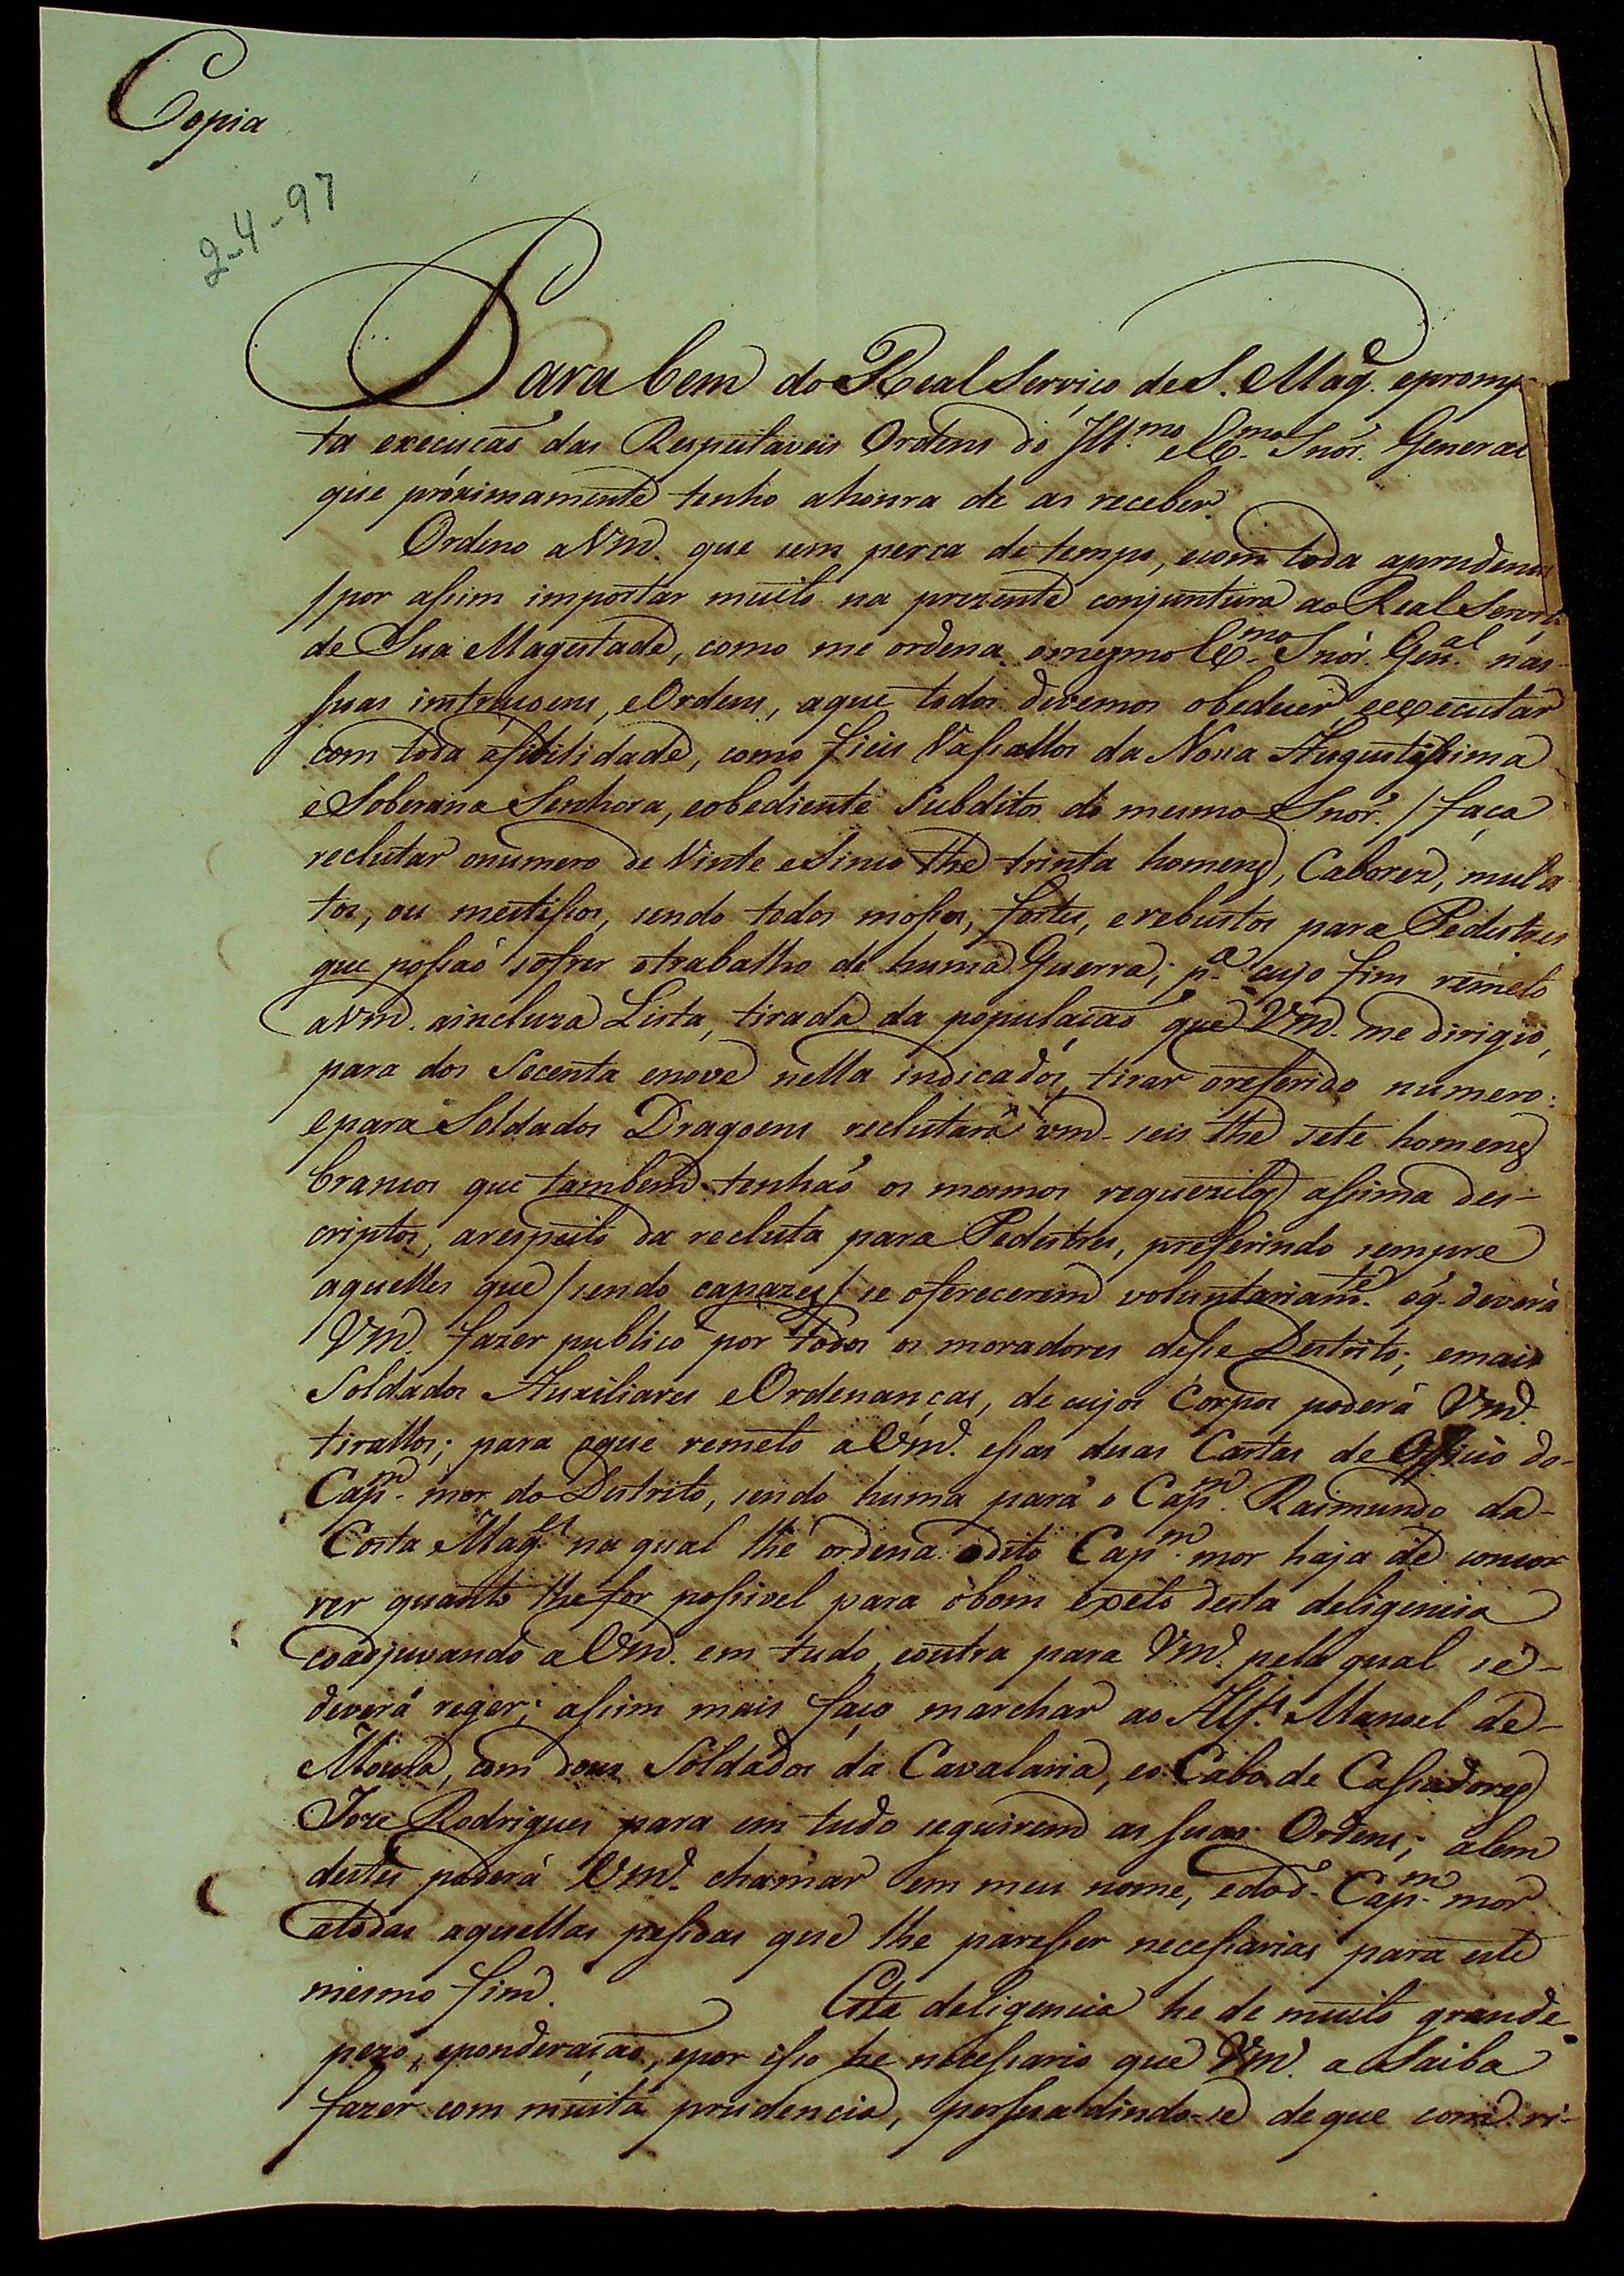 Copia
2-4-97
Para bem do Real Serviço de S. Mag.e epromp-
ta execução das Respeitaveis Ordens do Ill.mo eEx.mo Snór. General
que próximamente tenho ahonra de as receber.
Ordeno aVm. que sem perca de tempo, ecom toda aprudencia
/por assim importar muito na prezente conjuntura ao Real Serviço
de Sua Magestade, como me ordena omezmo Ex.mo Snór. Gen.al nas-
suas intruçoens, eOrdens, aque todos devemos obedecer, eexecutar
com toda afidilidade, como fieis Vassallos da Nossa Augustissima
eSoberana Senhora, eobediente Subditos do mesmo Snór./ faça
reclutar onumero de Vinte eSinco thé trinta homens, Cabores, mula
tos, ou mestissos, sendo todos mossos, fortes, erebustos para Pedestres
que possaó sofrer otrabalho de huma Guerra; p.a cujo fim remeto
aVm. aincluza Lista, tirada da populaçaó que Vm. me dirigio,
para dos Secenta enove nella indicados, tirar oreferido numero:
epara Soldados Dragoens reclutará vm. seis thé sete homens
brancos que tambem tenhaó os mesmos requezitos assima des-
criptos, arespeito da recluta para Pedestres, preferindo sempre
aquelles que /sendo capazes/ se oferecerem voluntariam.te oq. deverá
Vm. fazer publico por todos os moradores desse Destrito; emais
Soldados Auxiliares eOrdenanças, de cujos Corpos poderá Vm.
tirallos; para oque remeto aVm. essas duas Cartas de Officio do-
Cap.m mor do Destrito, sendo huma para o Cap.m Raimundo da-
Costa Mag.es na qual lhe ordena odito Cap.m mor haja de concor
rer quanto lhe for possivel para obom exeto desta deligencia
coadjuvando aVm. em tudo, eoutra para Vm. pela qual se-
deverá reger; assim mais faço marchar ao Alf.s Manoel de-
Moula, com dous Soldados da Cavalaria, eo Cabo de Cassadores
Joze Rodrigues para em tudo seguirem as suas Ordens; alem
destes poderá Vm. chamar em meu nome, edod. Cap.m mor
atodas aquellas pessoas que lhe paresser necessarias para este
mesmo fim. Esta deligencia he de muito grande
pezo, eponderaçaó, epor isso he necessario que Vm. a Saiba
fazer com muita prudencia, persuadindo-se deque com ri-